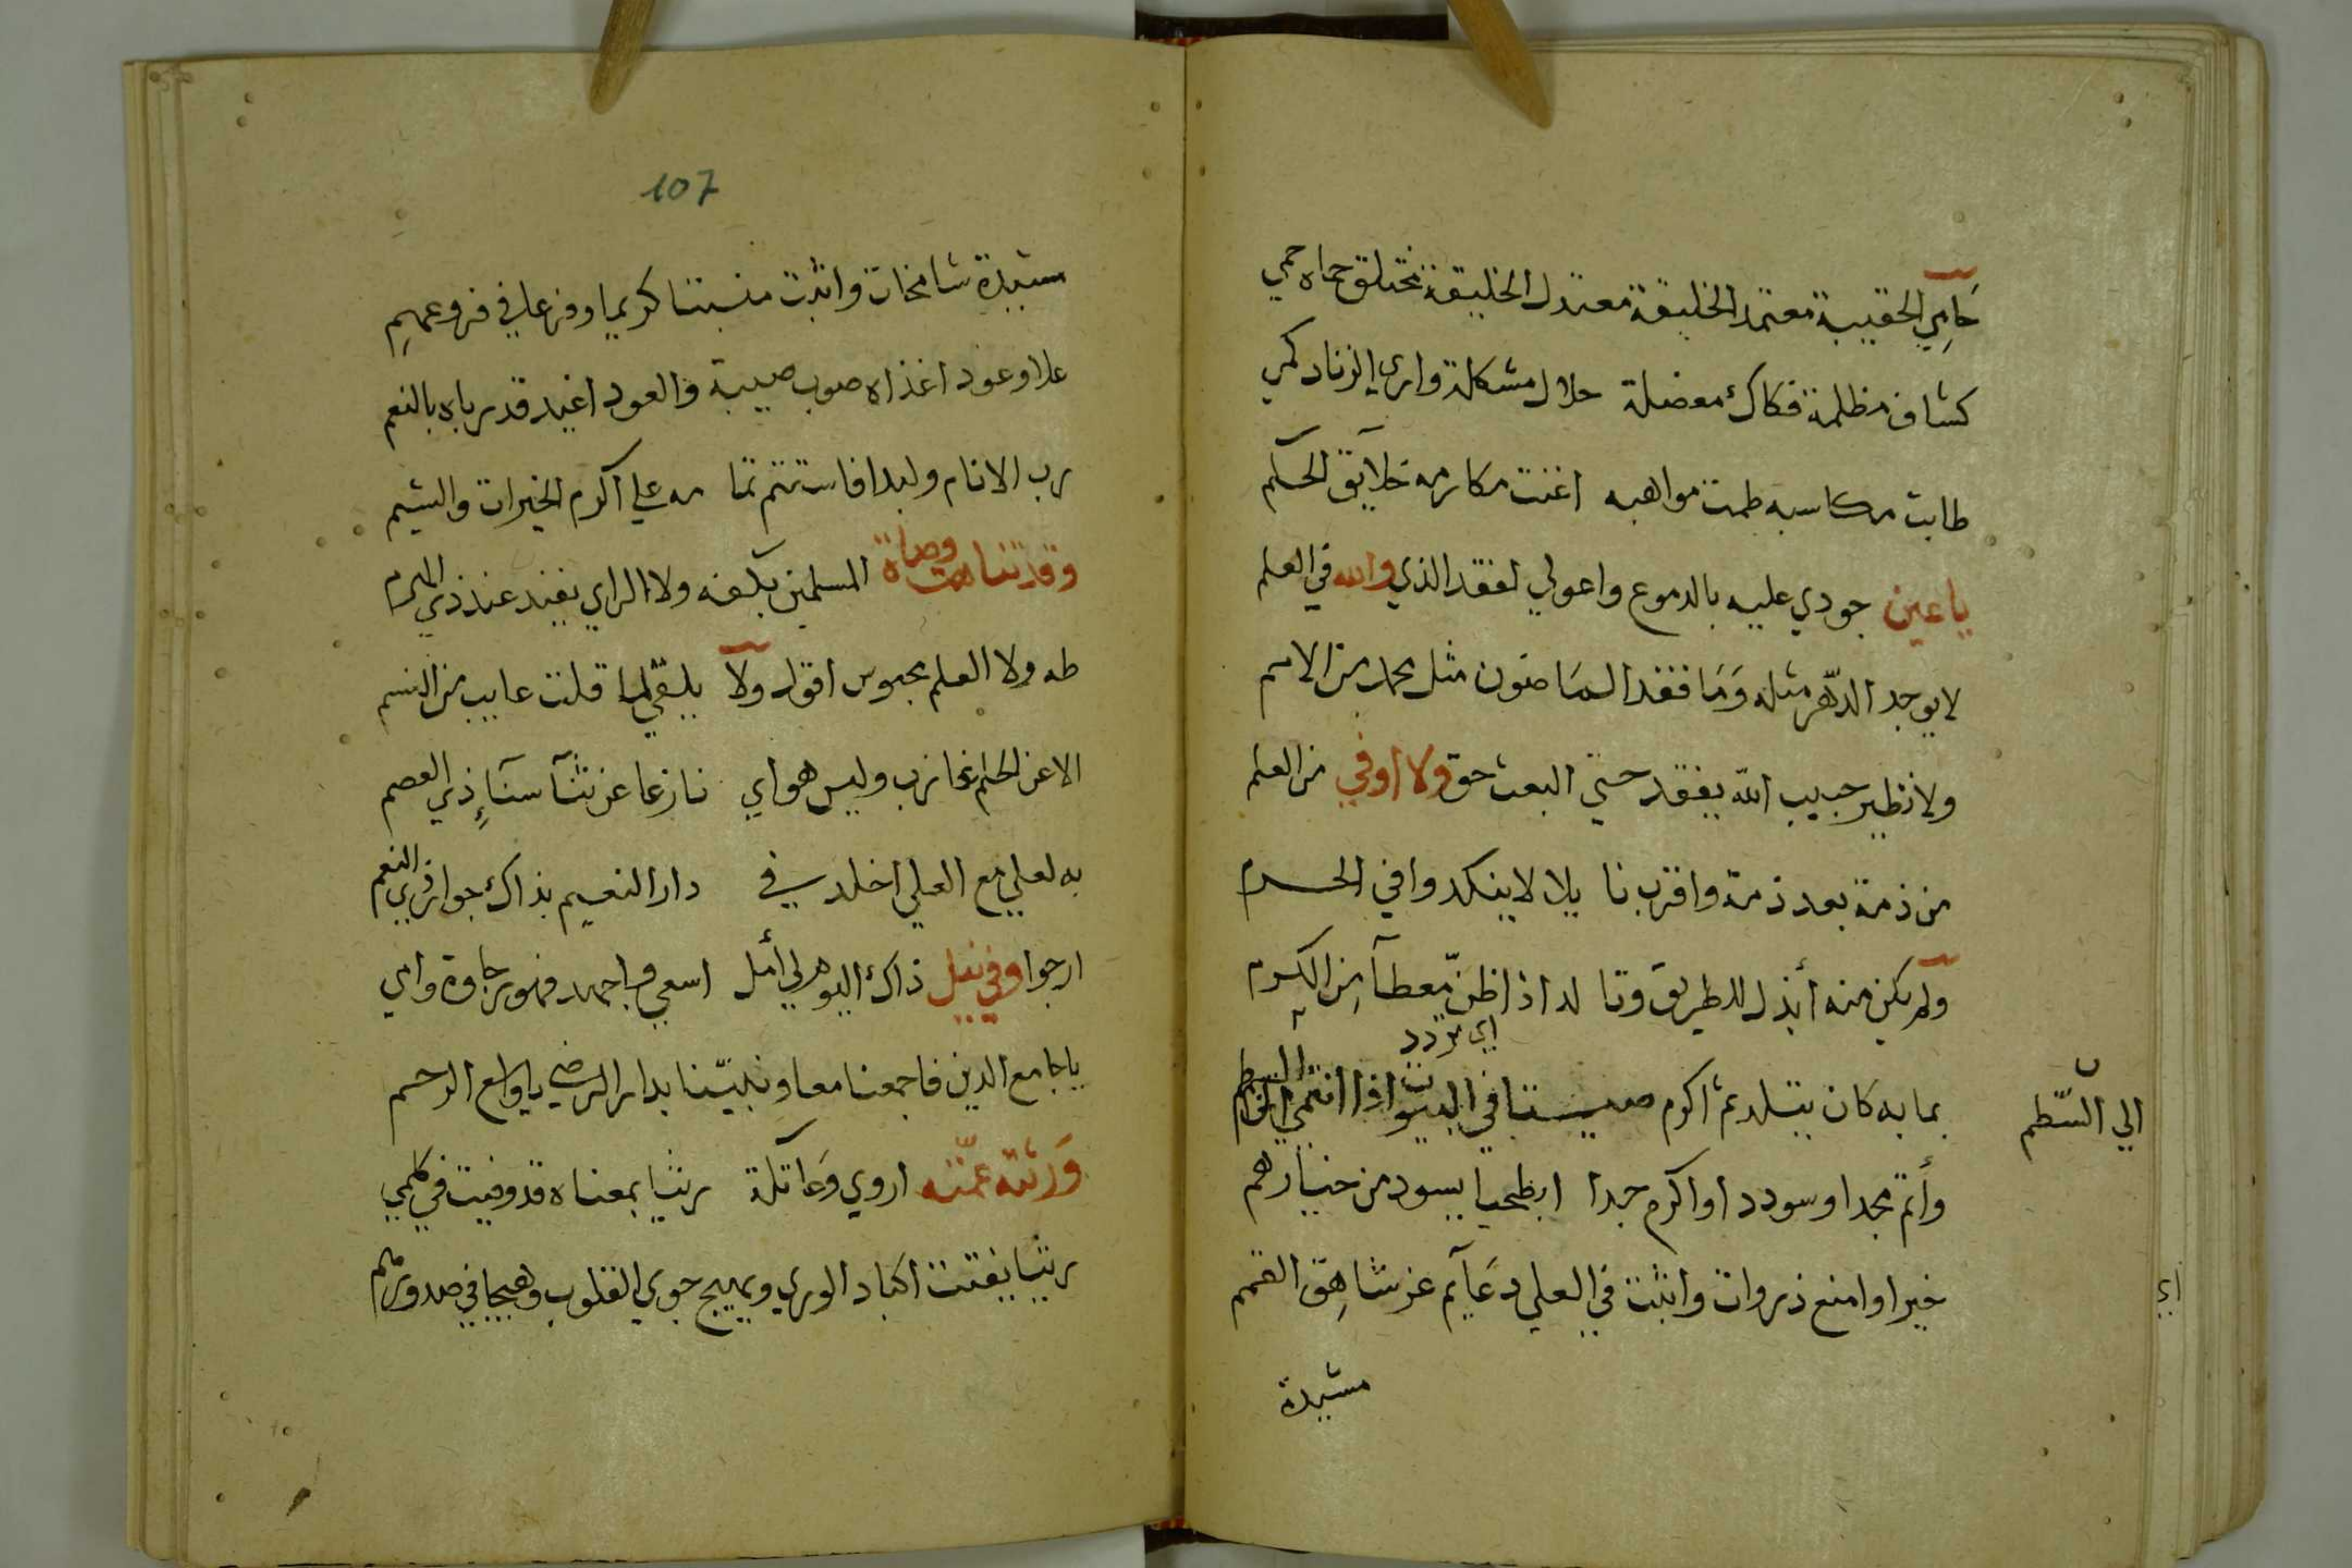 حَامِي الحقيبة معتمد الخليفة معتدل الخليقة مختلق حماه حمي
كشاف مظلمة فكاك معضلة حلال مشكلة واري الزناد كمي
طابت مكاسبه طمت مواهبه اغنت مكارمه خلآيق الحكم
ياعين جودي عليه بالدموع واعولي لفقد الذي والله في العلم
لا يوجد الدّهر مثله وَمَا فقد المَاضون مثل محمد من الامم
ولا نظير حبيب الله يفقد حتي البعث حق ولا اوفي من العلم
من ذمة بعد ذمة واقرب نا يلا لا ينكد وا في الحرم
ولم يكن منه أبذل للطريق وتا لد اذا ظنّ معطآ من الكرم
اي مردد
بما به كان يتلد ثم اكرم صيتا في البيوت اذا انتمي
الي السّطم
وأتم مجدا وسودد اواكرم جدا ابطحيا يسود من خيارهم
خيرا وامنع ذروات واثبت في العلي دعَآيم عز شاهِق القمم
اي
مشيدة
107
مشيدة شامخات واثبت منبتنا كريما وفرعا في فروعهمِ
علا وعود اغذاه صوب صيبة والعود اغيد قد رباه بالنعم
رب الانام وليدا فاستتم تما مه علي اكرم الخيرات والشيم
وقد تناهت وصاة المسلمين بكفه ولا الراي يفند عند ذي
طه ولا العلم محبوس اقول ولآ يلقي لما قلت عايب من النسم
الا عن الحلم عازب وليس هواي نازعا عن ثنآ سنآءِ ذي العصم
به لعلي مع العلي اخلد في دار النعيم بذاك جوار ذي النعم
ارجوا وفي نيل ذاك اليوم لي أمل اسعي اجهد
يا جامع الدين فاجمعنا معا ونبيّنا بدار الرضي يا واسع الرحم
وَرثته عمّته اروي وَعاتكة رثيا بمعناه قد وفيت في كلمي
رثيا يفتت اكباد الوري ويهيج جوي القلوب وهيجا في صدورهم